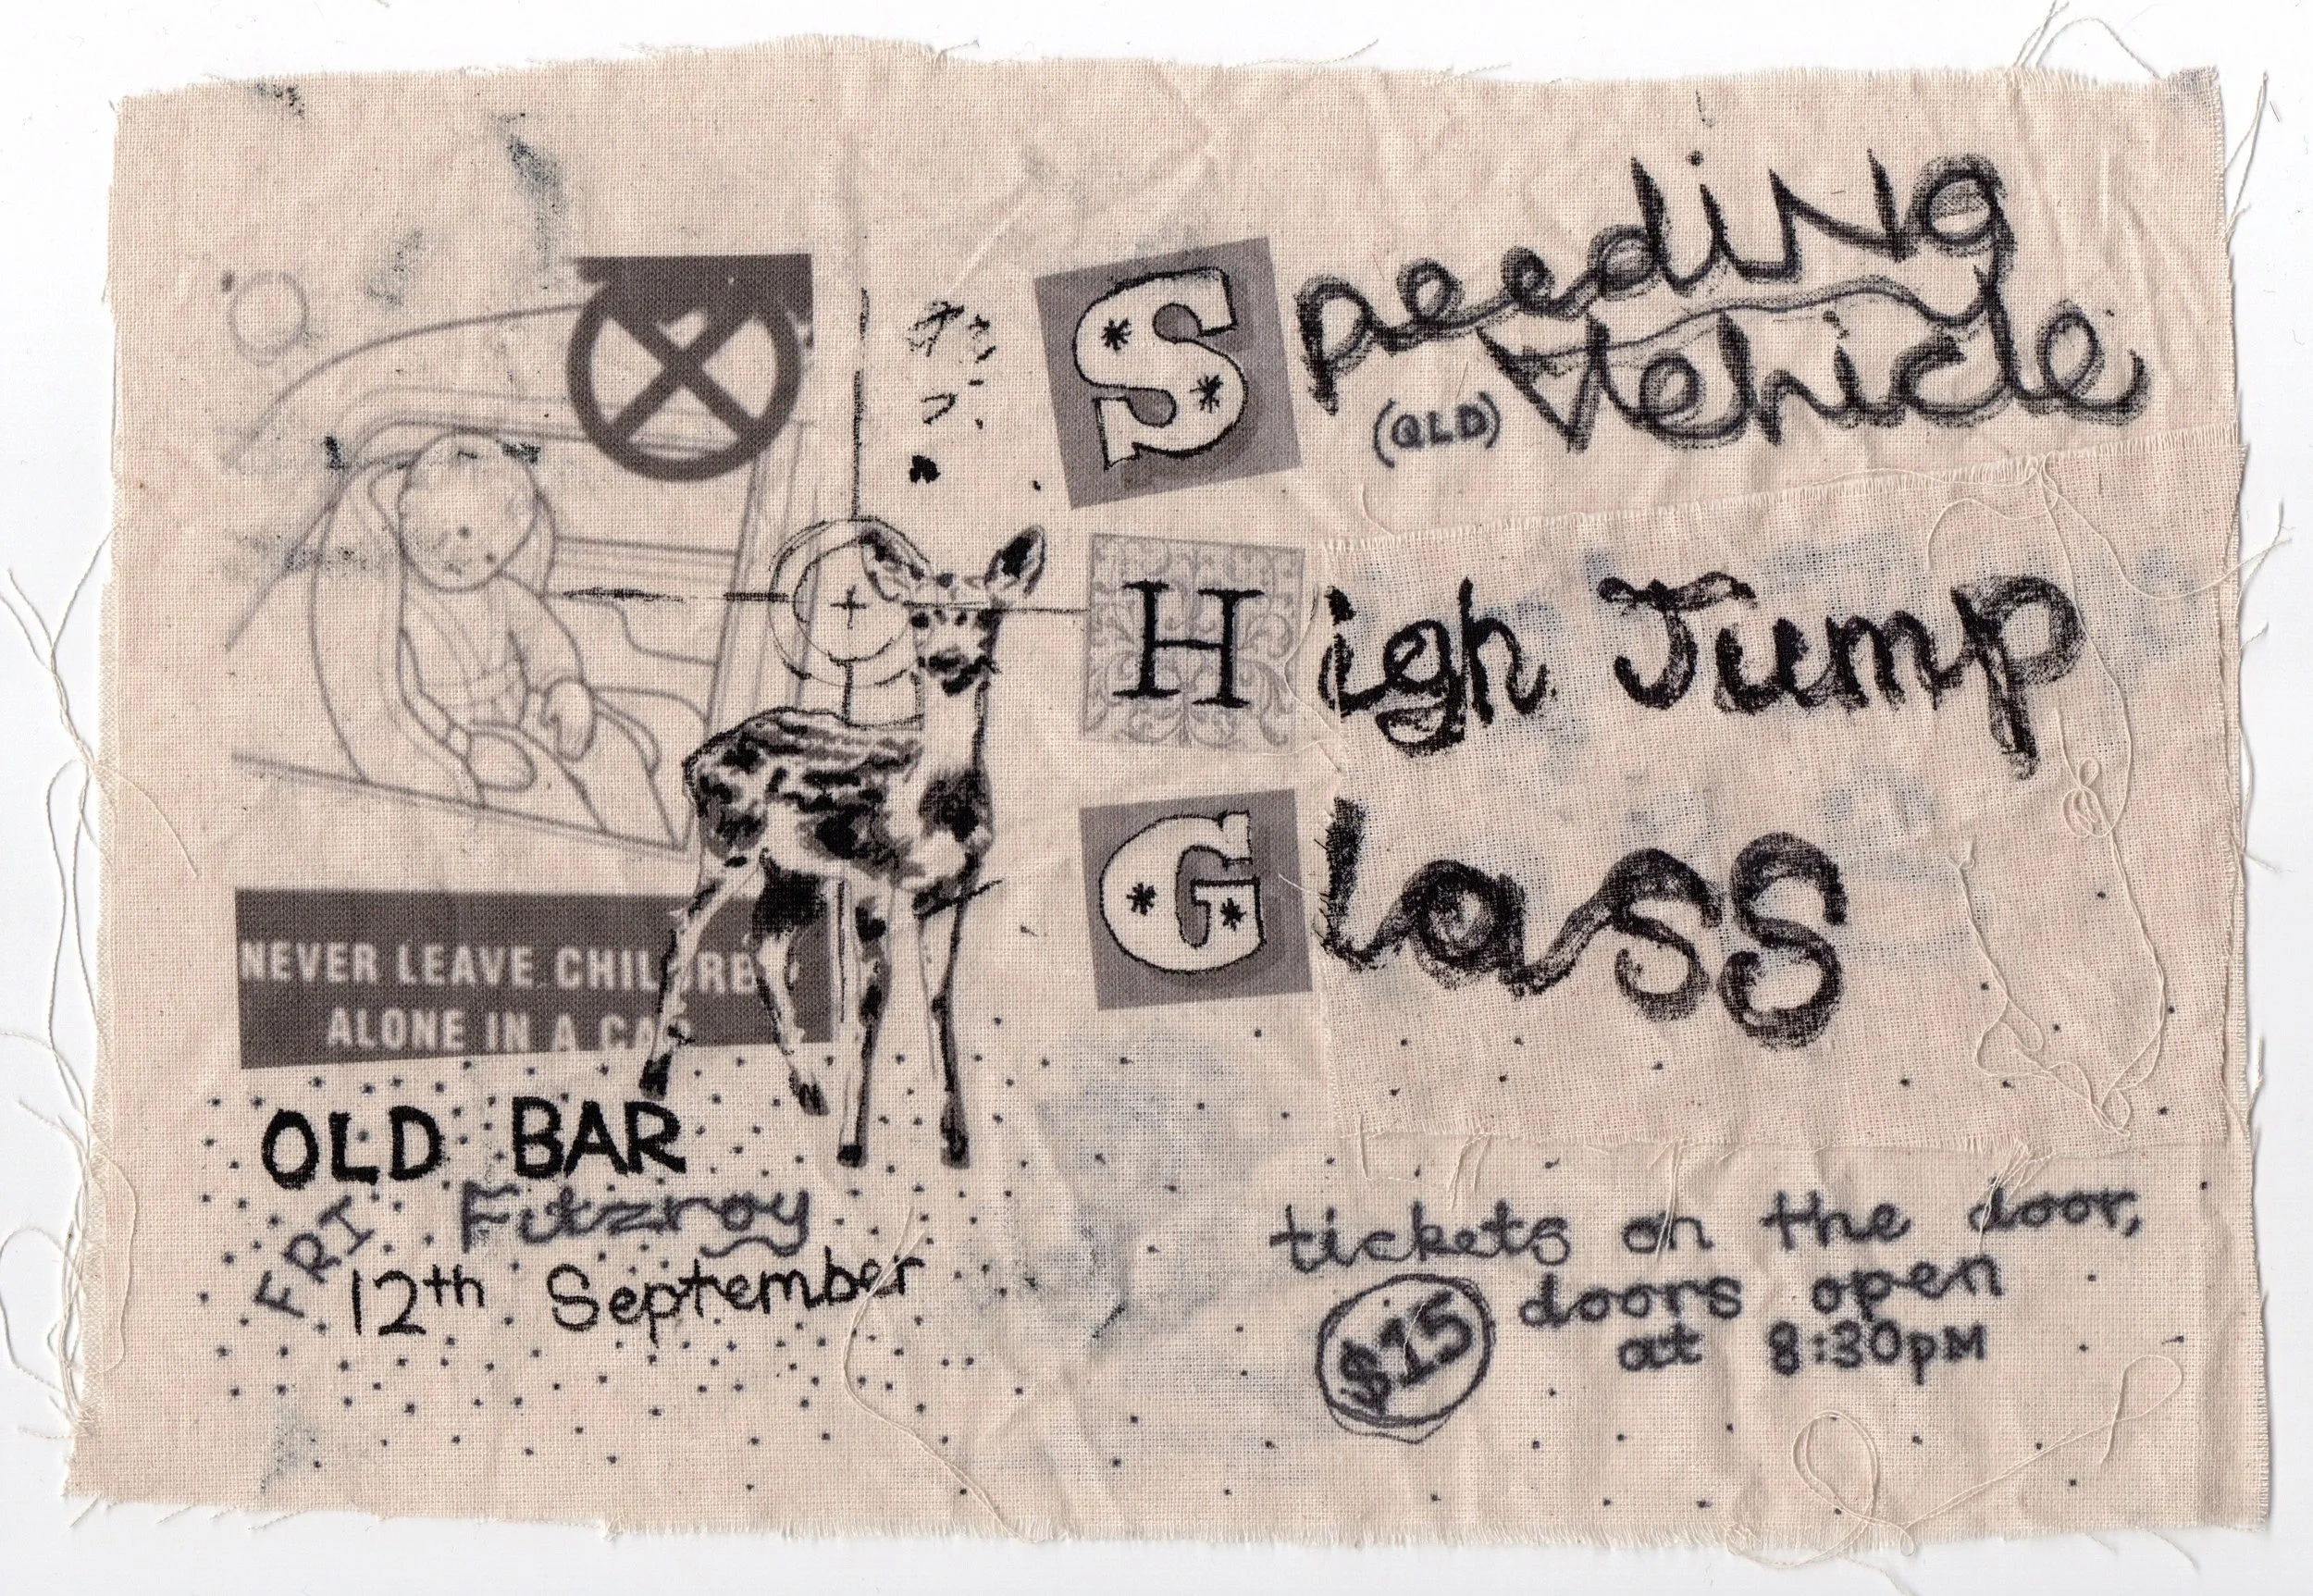 Speeding
Vehicle
(QLD)
High Jump
Glass
NEVER LEAVE CHILDRE
ALONE IN A CA
OLD BAR
Fitzroy
FRI
12th September
tickets on the door,
$15
doors open
at 8:30pm